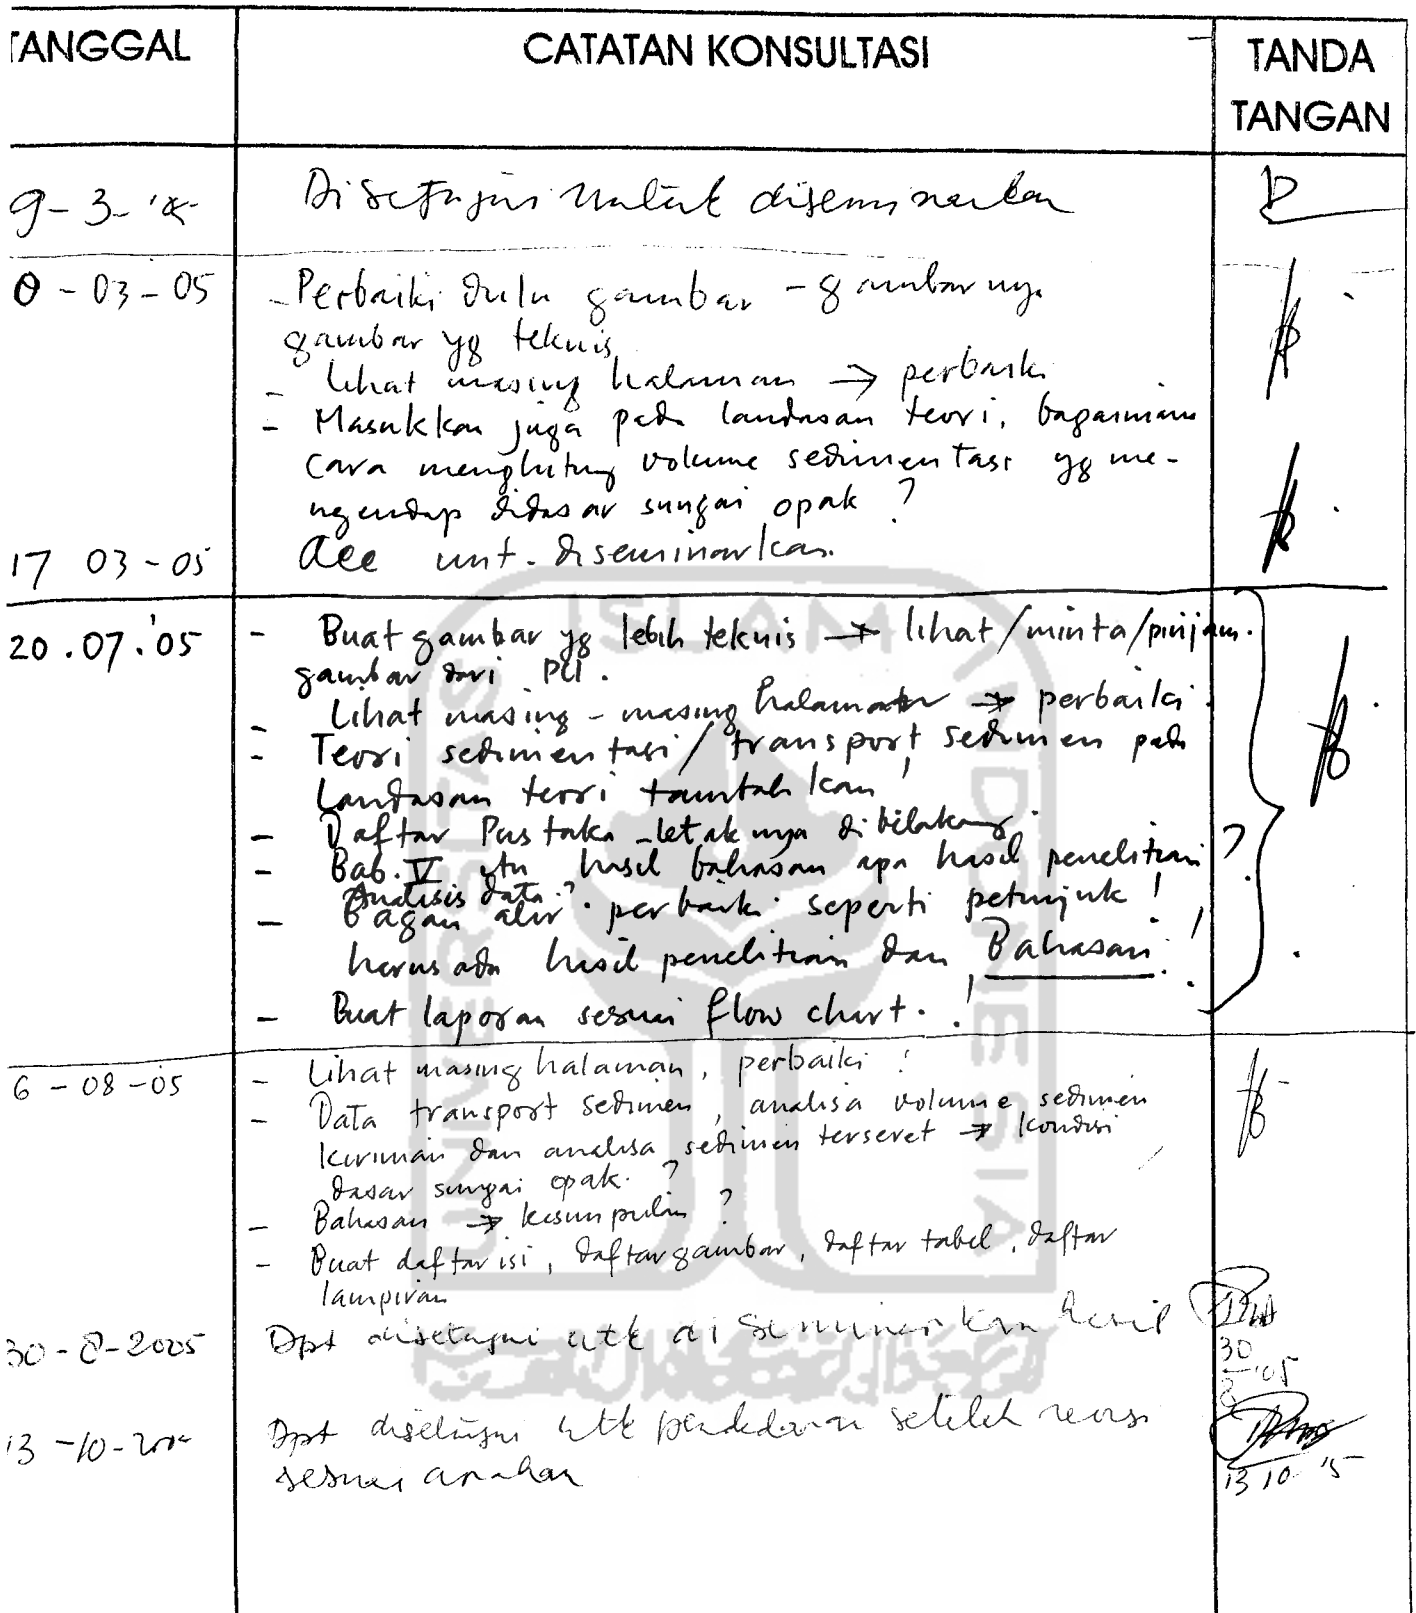 TANGGAL CATATAN KONSULTASI TANDA TANGAN
9-3-'05 Disetujui untuk diseminarkan
0-03-05 - Perbaiki dulu gambar - gambarnya
gambar yg teknis
- Lihat masing halaman → perbaiki
- Masukkan juga pada landasan teori, bagaimana
cara menghitung volume sedimentasi yg me-
ngendap didasar sungai opak ?
17 03-05 acc unt. diseminarkan.
20.07.'05 - Buat gambar yg lebih teknis → lihat/minta/pinjam
gambar dari PU.
- Lihat masing - masing halaman → perbaiki.
- Teori sedimentasi / transport sedimen pada
Landasan teori tambahkan !
- Daftar Pustaka letaknya dibelakang.
- Bab. V itu hasil bahasan apa hasil penelitian ?
Analisis data ?
- Bagan alir perbaiki seperti petunjuk !
harus ada hasil penelitian dan Bahasan !
- Buat laporan sesuai flow chart. !
6-08-05 - Lihat masing halaman, perbaiki !
- Data transport sedimen, analisa volume sedimen
kiriman dan analisa sedimen terseret → kondisi
dasar sungai opak. ?
- Bahasan → kesimpulan ?
- Buat daftar isi, daftar gambar, daftar tabel, daftar
lampiran
30-8-2005 Dpt disetujui utk di seminarkan hasil
30/8 '05
13-10-2005 Dpt disetujui utk pendadaran setelah revisi
sesuai arahan
13 10 '5
UNIVERSITAS ISLAM INDONESIA